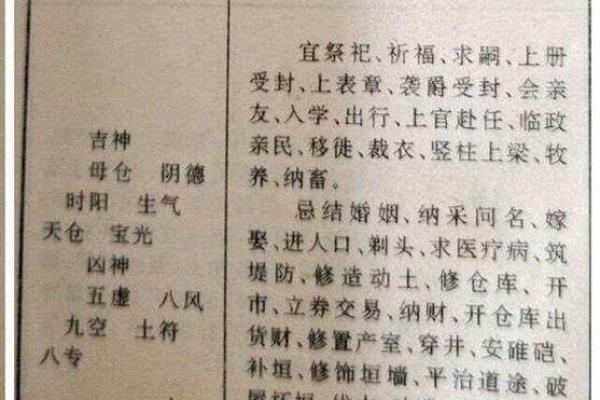 吉神
母仓 阴德
时阳 生气
天仓 宝光
凶神
五虚 八风
九空 土符
八专
宜祭祀、祈福、求嗣、上册
受封、上表章、袭爵受封、会亲
友、入学、出行、上官赴任、临政
亲民、移徙、裁衣、竖柱上梁、牧
养、纳畜。
忌结婚姻、纳采问名、嫁
娶、进人口、剃头、求医疗病、筑
堤防、修造动土、修仓库、开
市、立券交易、纳财、开仓库出
货财、修置产室、穿井、安碓硙、
补垣、修饰垣墙、平治道途、破